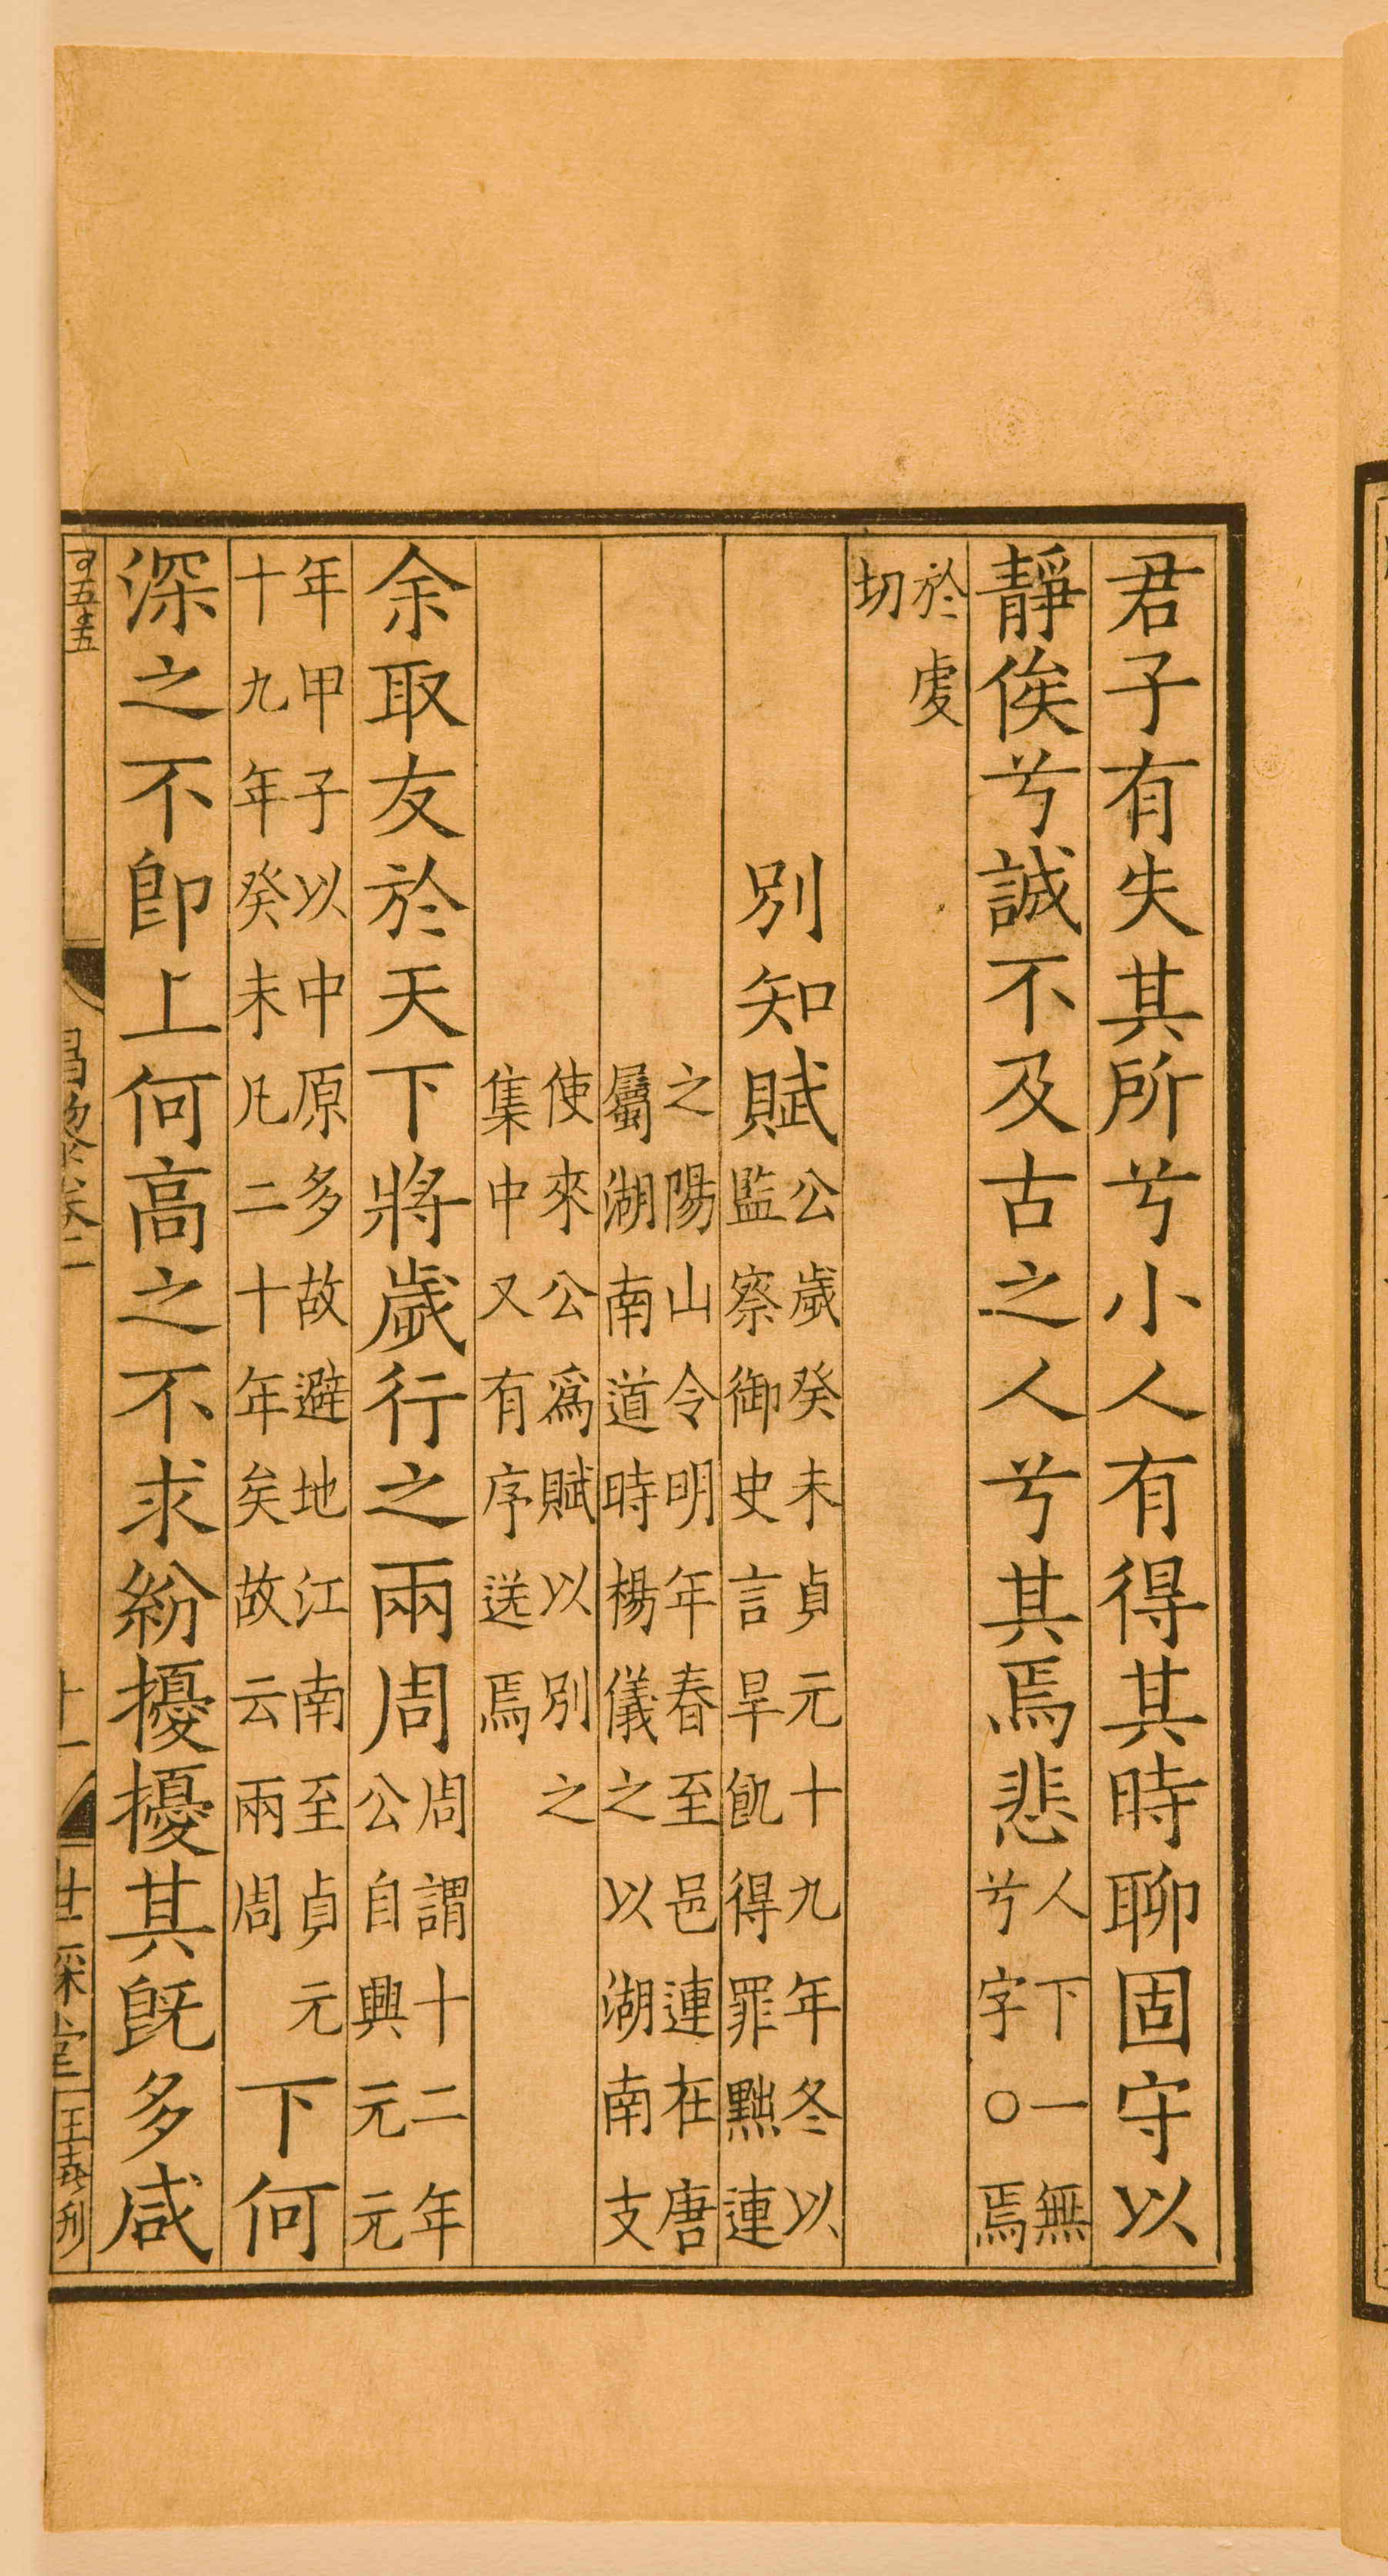 君子有失其所兮小人有得其時聊固守以
靜俟兮誠不及古之人兮其焉悲
人下一無
兮字○焉
於虔
切
別知賦
公歲癸未貞元十九年冬以
監察御史言旱飢得罪黜連
之陽山令明年春至邑連在唐
屬湖南道時楊儀之以湖南支
使來公爲賦以別之
集中又有序送焉
余取友於天下將歲行之兩周
周謂十二年
公自興元元
年甲子以中原多故避地江南至貞元
十九年癸未凡二十年矣故云兩周
下何
深之不即上何高之不求紛擾擾其旣多咸
昌黎卷二
十一
世綵堂